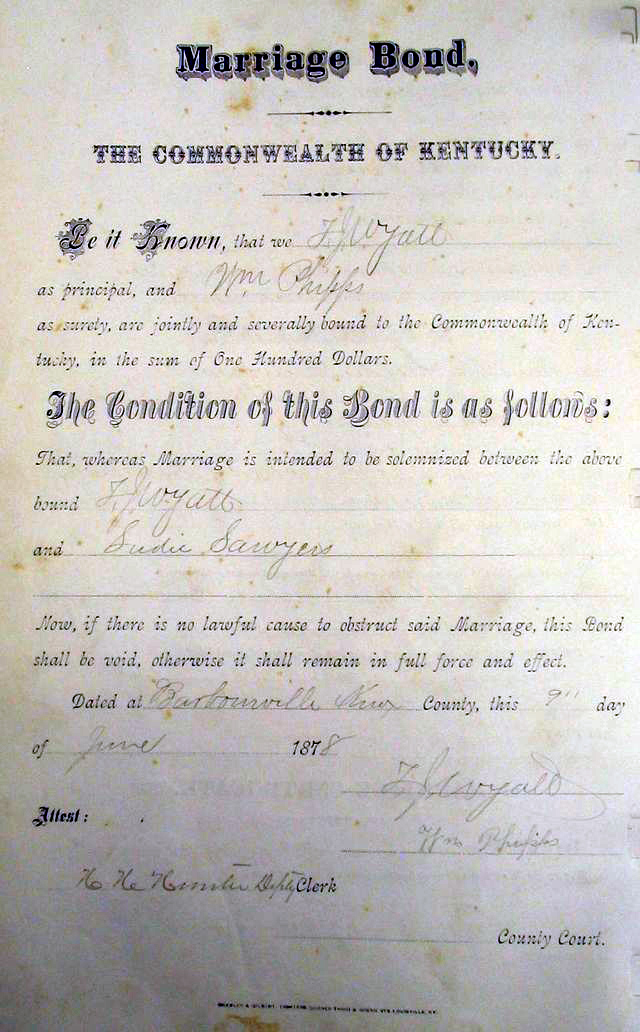 Marriage Bond,
THE COMMONWEALTH OF KENTUCKY.
Be it Known, that we F. J. Wyatt
as principal, and Wm Phipps
as surety, are jointly and severally bound to the Commonwealth of Ken-
tucky, in the sum of One Hundred Dollars.
The Condition of this Bond is as follows:
That, whereas Marriage is intended to be solemnized between the above
bound F. J. Wyatt
and Sudie Sawyers
Now, if there is no lawful cause to obstruct said Marriage, this Bond
shall be void, otherwise it shall remain in full force and effect.
Dated at Barbourville Knox County, this 9" day
of June 1878
F. J. Wyatt
Attest:
Wm Phipps
H. H. Hunter Dpty Clerk
County Court.